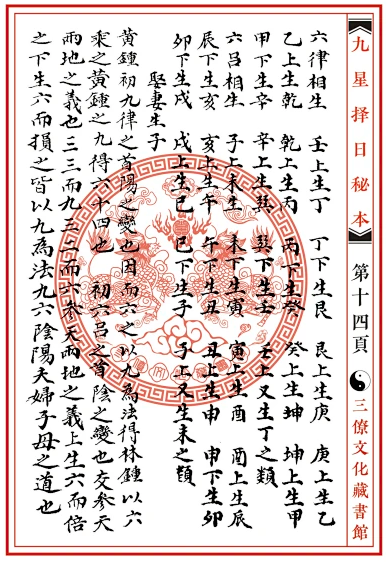 九星择日秘本 第十四頁 三僚文化藏書館
六律相生 壬上生丁 丁下生艮 艮上生庚 庚上生乙
乙上生乾 乾上生丙 丙下生癸 癸上生坤 坤上生甲
甲下生辛 辛上生巽 巽下生壬 壬上又生丁之類
六呂相生 子上未生 未下生寅 寅上生酉 酉上生辰
辰下生亥 亥上生午 午下生丑 丑上生申 申下生卯
卯下生戌 戌上生巳 巳下生子 子上又生未之類
娶妻生子
黃鍾初九律之首陽之變也因而六之以九為法得林鍾以六
乘之黃鍾之九得六十四也 初六呂之首陰之變也交参天
兩地之義也三三而九三二而六参天兩地之義上生六而倍
之下生六而損之皆以九為法九六陰陽夫婦子母之道也